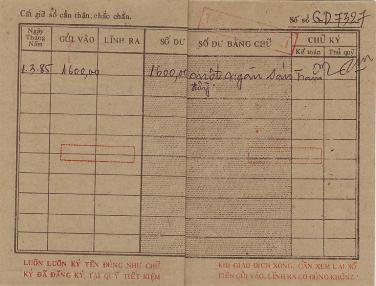 Cất giữ sổ cẩn thận, chắc chắn.
Số sổ GD7327
Ngày Tháng Năm
GỬI VÀO
LĨNH RA
SỐ DƯ
SỐ DƯ BẰNG CHỮ
CHỮ KÝ
Kế toán
Thủ quỹ
1.3.85
1600,00
1600,00
một ngàn sáu trăm
đồng
LUÔN LUÔN KÝ TÊN ĐÚNG NHƯ CHỮ
KÝ ĐÃ ĐĂNG KÝ, TẠI QUỸ TIẾT KIỆM
KHI GIAO DỊCH XONG, CẦN XEM LẠI SỐ
TIỀN GỬI VÀO, LĨNH RA CÓ ĐÚNG KHÔNG?